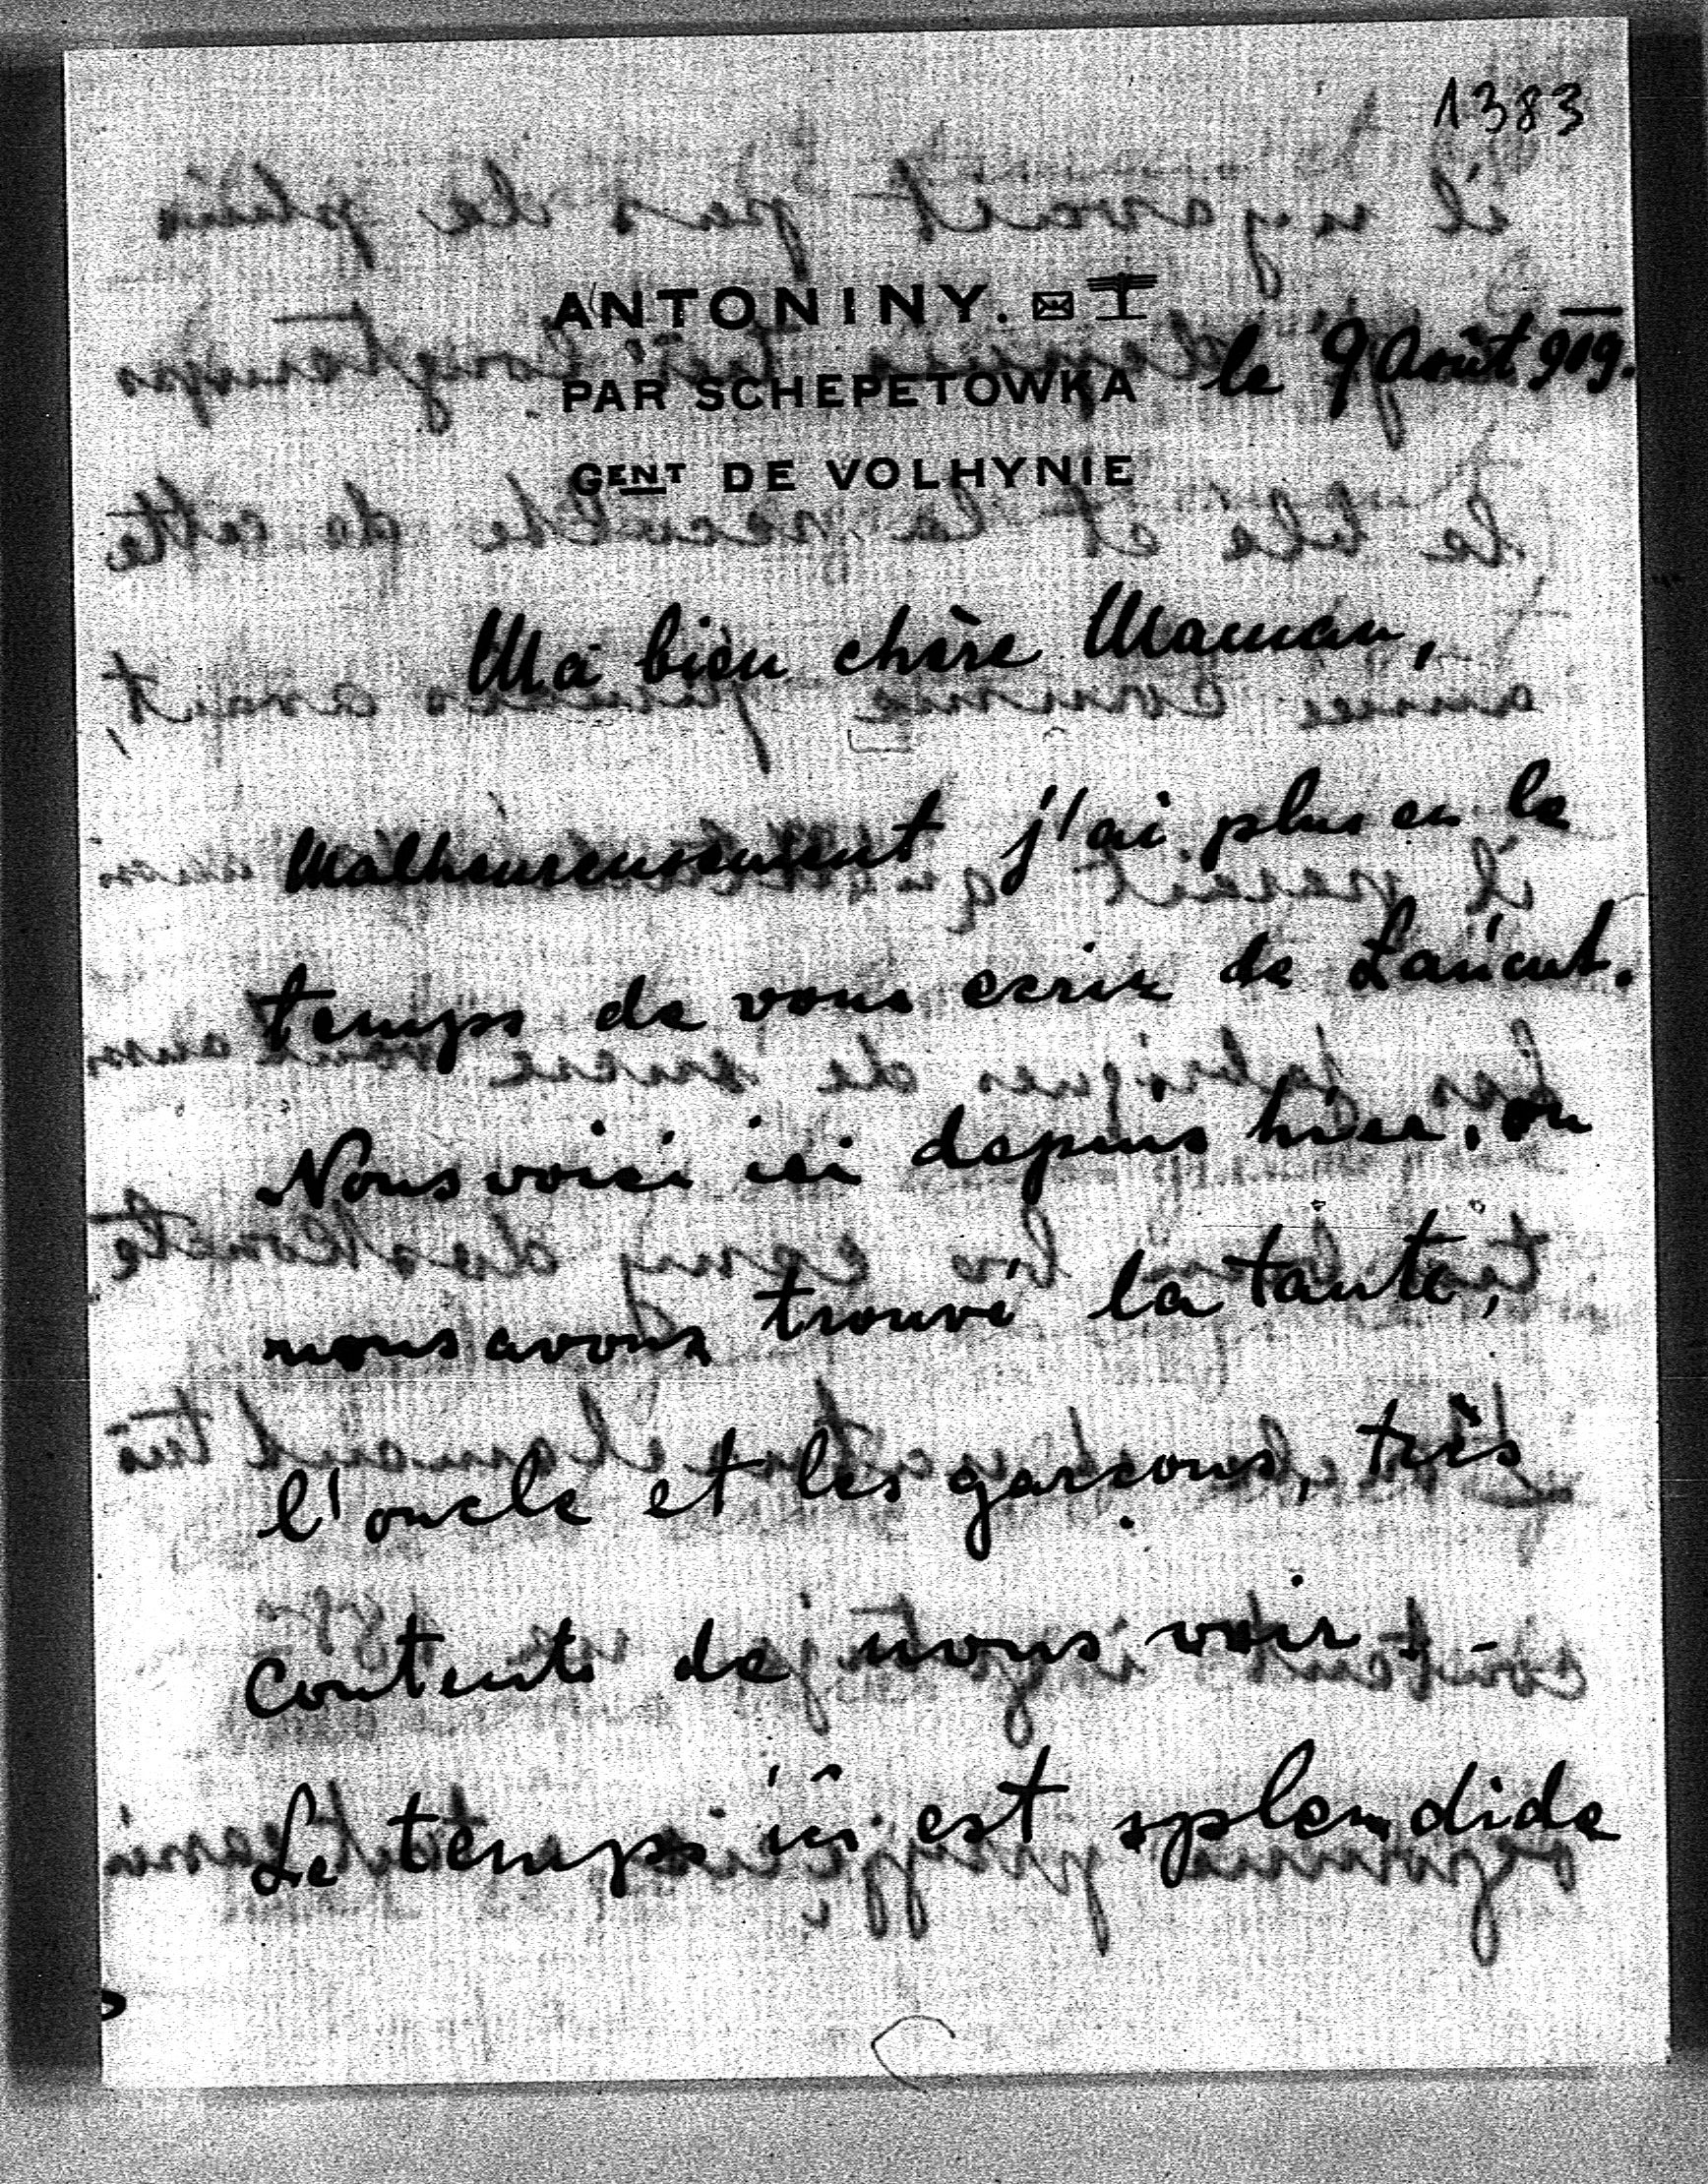 1383
ANTONINY.
PAR SCHEPETOWKA le 9 Août 909.
GENT DE VOLHYNIE
Ma bien chère Maman,
Malheureusement j'ai plus eu le
temps de vous ecrire de Łańcut.
Nous voici ici depuis hier, ou
nous avons trouvé la tante,
l'oncle et les garçons, très
contents de nous voir -
Le temps ici est splendide